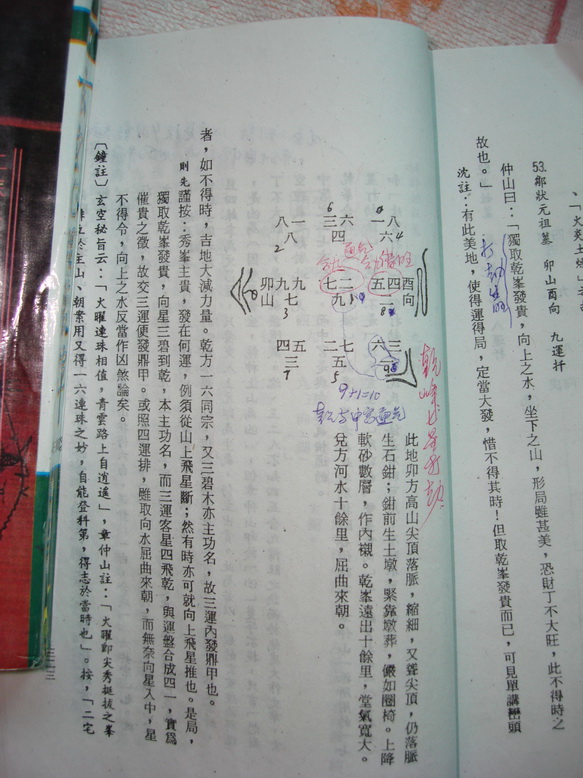 53.鄒狀元祖墓　卯山酉向　九運扦
仲山曰：「獨取乾峯發貴，向上之水，坐下之山，形局雖甚美，恐財丁不大旺，此不得時之
故也。」
沈註：有此美地，使得運得局，定當大發，惜不得其時！但取乾峯發貴而已，可見單講巒頭
打劫
乾
峰
一八
六
六
三
四
八一
八
酉向
五四
七二
九
九九
七
卯山
六三
二七
五
四五
三
9+1=10
此地卯方高山尖頂落脈，縮細，又聳尖頂，仍落脈
生石鉗；鉗前生土墩，緊靠墩葬，儼如圈椅。上降
軟砂數層，作內襯。乾峯遠出十餘里，堂氣寬大。
兌方河水十餘里，屈曲來朝。
者，如不得時，吉地大減力量。乾方一六同宗，又三碧木亦主功名，故三運內發鼎甲也。
則先謹按：秀峯主貴，發在何運，例須從山上飛星斷；然有時亦可就向上飛星推也。是局，
獨取乾峯發貴，向星三碧到乾，本主功名，而三運客星四飛乾，與運盤合成四一，實爲
催貴之徵，故交三運便發鼎甲。或照四運排，雖取向水屈曲來朝，而無奈向星入中，星
不得令，向上之水反當作凶煞論矣。
〔鐘註〕玄空秘旨云：「火曜連珠相值，青雲路上自逍遙」，章仲山註：「火曜即尖秀挺拔之峯
主山、朝案用又得一六連珠之妙，自能登科第，得志於當時也」。按，「二宅